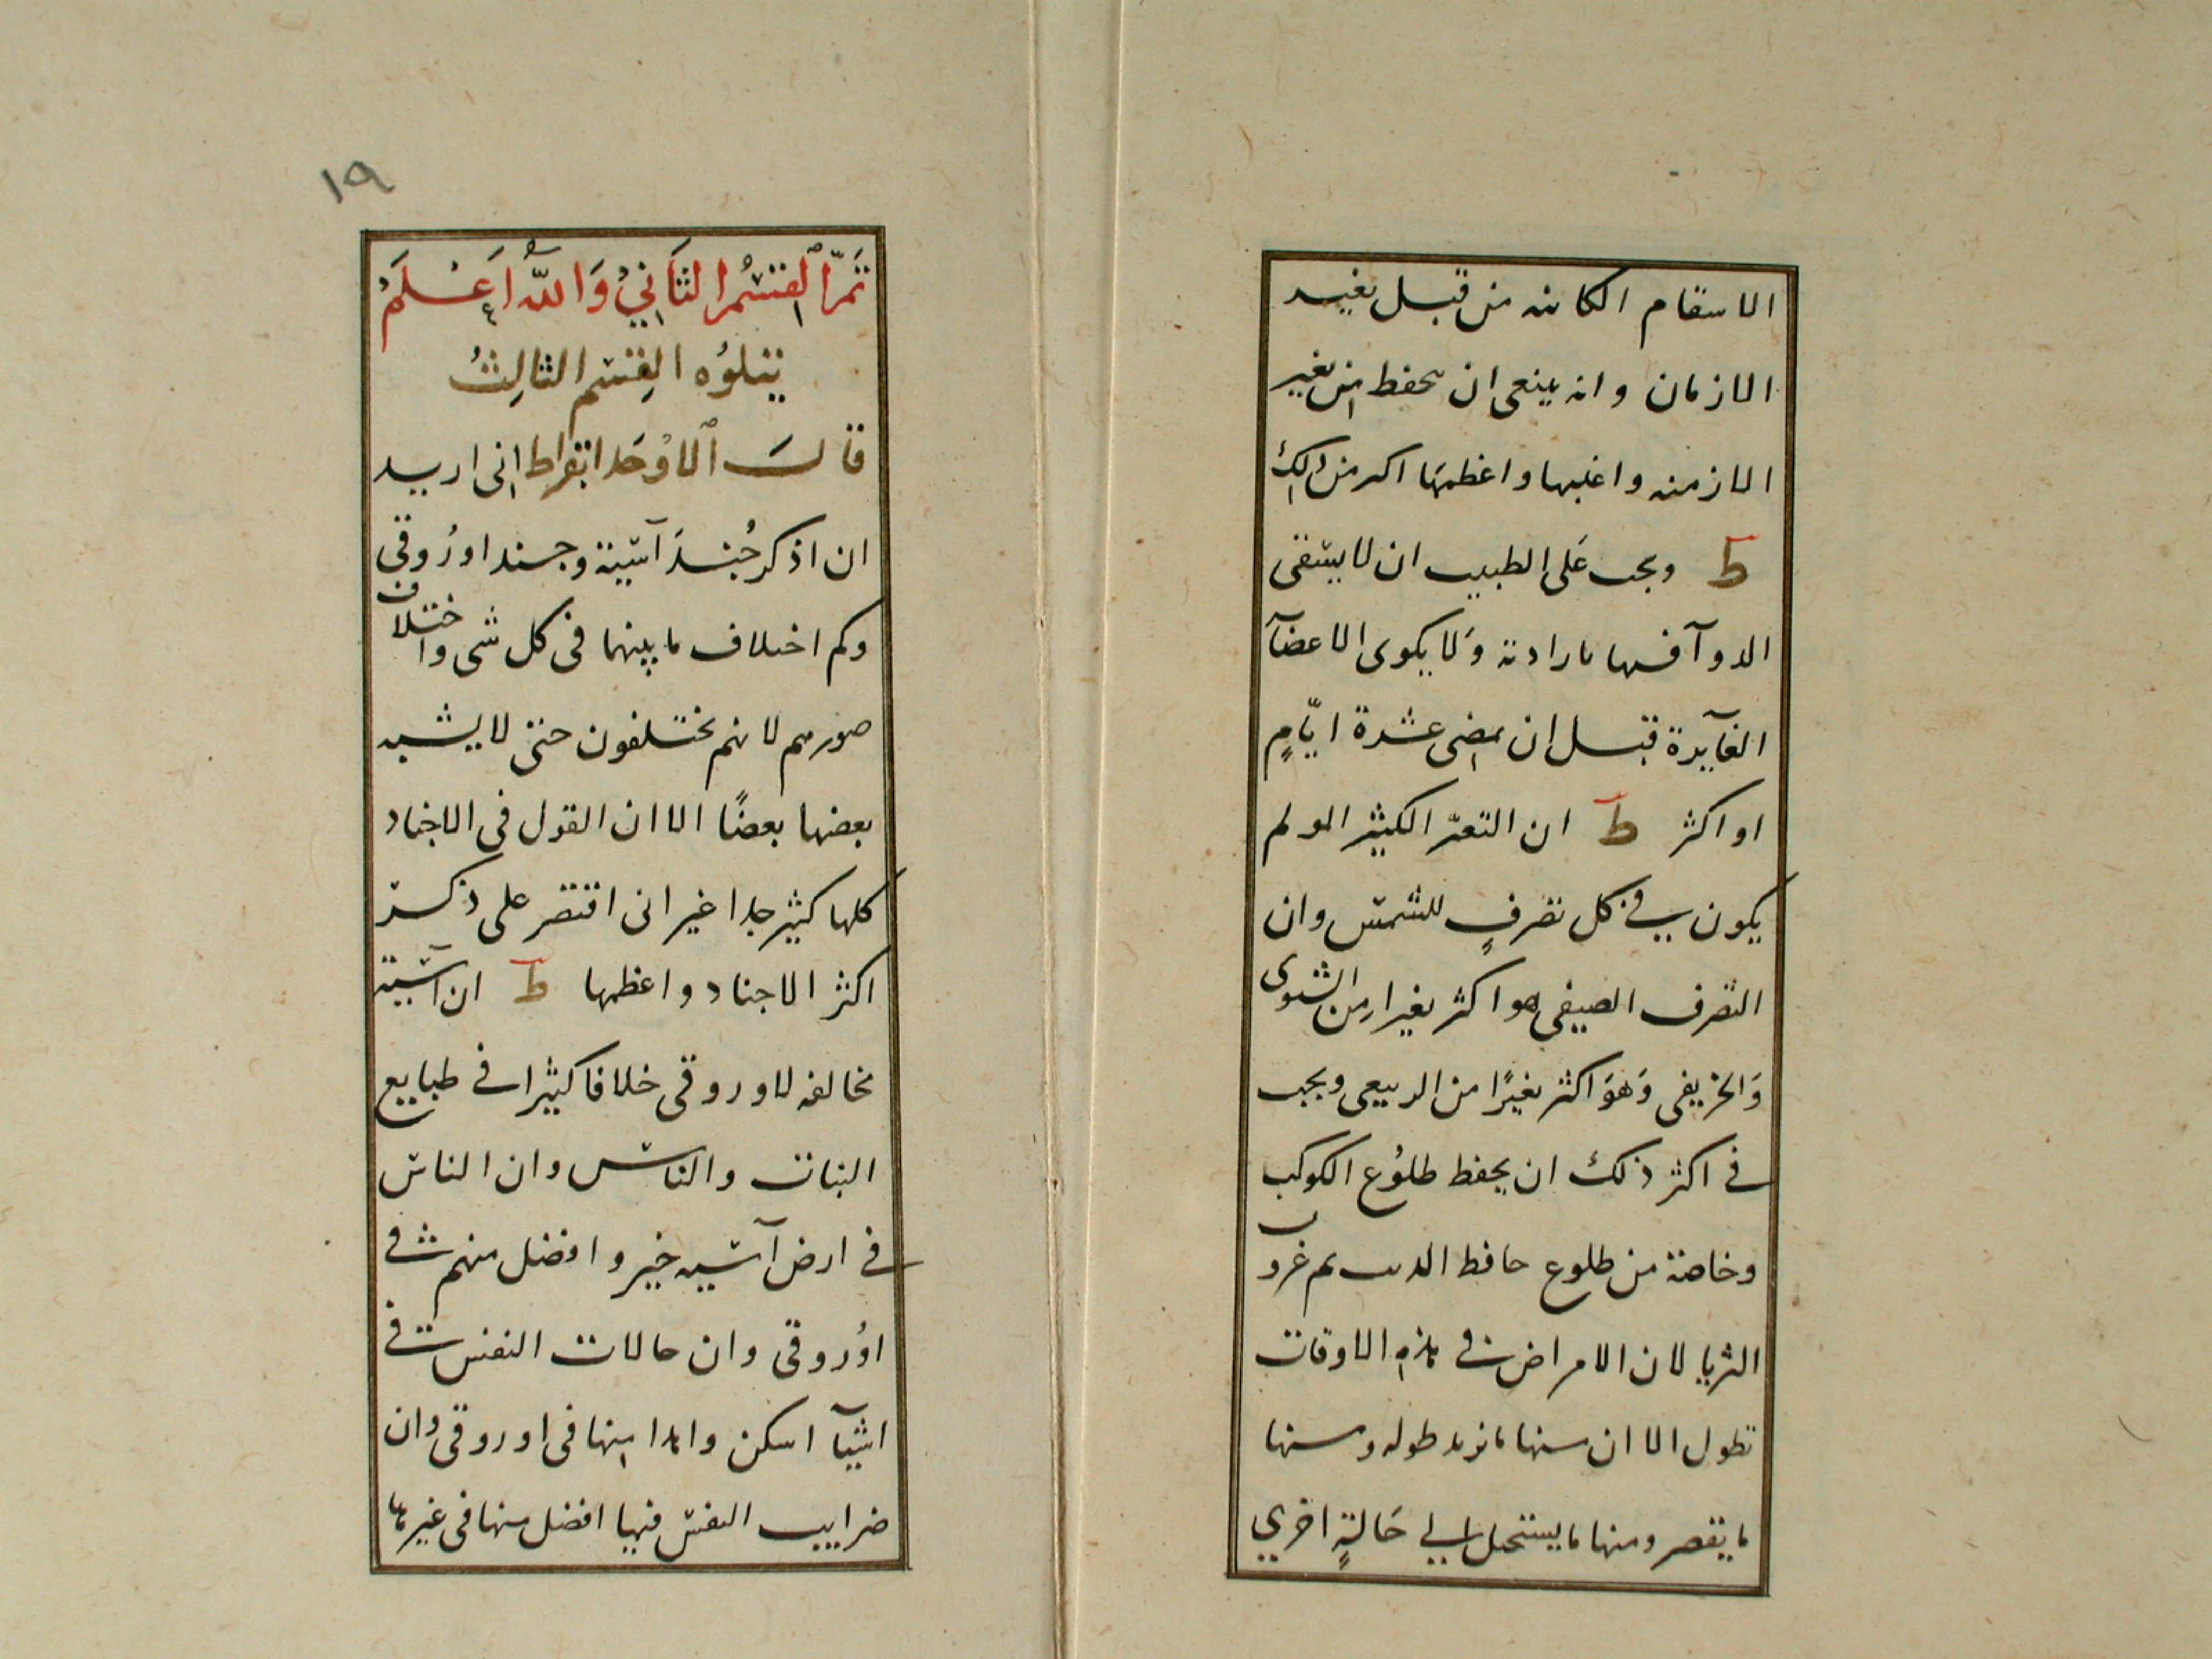 الاسقام الكاىنه من قبل تغيير
الازمان وانه ينبغى ان يحفظ من تغير
الازمنه واغلبها واعظمها اكىر من ذلك
ط ويجب عَلى الطبيب ان لا يسقى
الدوآ فيها بارادته وَلا يكوى الاعضآ
الفآيدة قبل ان يمضى عشرة ايّامٍ
او اكثر ط ان التغيّر الكثير المولم
يكون في كل تصرفٍ للشمس وان
التصرف الصيفى هو اكثر تغيرا من الشتوى
وَالخريفى وَهوَ اكثر تغيرًا من الربيعى ويجب
فى اكثر ذلك ان يحفظ طلوُع الكوكب
وخاصة من طلوع حافظ الدب ثم غروب
الثريا لان الامراض فى هذه الاوقات
تطول الا ان منها ما يزيد طوله ومنها
ما يقصر ومنها ما يستحيل الي حَالةٍ اخري
١٩
تَمّ ٱلقسْمُ الثاَنِيْ وَاللّٰه اَعْلَمُ
يتلوُه القِسم الثالِثُ
قالَ ٱلاوْحَد ابقراط انى اريد
ان اذكر جُندَ آسية وجند اورُوقى
وكم اختلاف ما بينهما فى كل شى واختلاف
صورهم لانهم مختلفون حتى لا يشبه
بعضها بعضًا الا ان القول فى الاجناد
كلها كثير جدا غير انى اقتصر على ذكر
اكثر الاجناد واعظمها ط ان آسية
مخالفه لاوروقى خلافا كثيرا فى طبايع
النبات والناس وان الناس
فى ارض آسيه خير وافضل منهم فى
اوُروقى وان حالات النفس فى
اسيآ اسكن واهدا منها فى اوروقى وان
ضرايب النفس فيها افضل منها فى غيرها